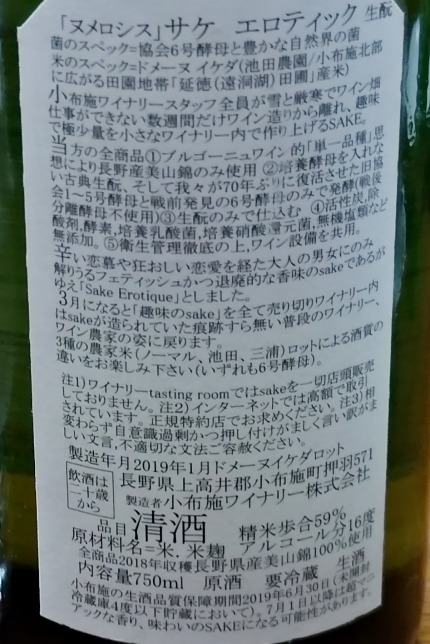 「ヌメロシス」サケ エロティック 生酛
菌のスペック=協会6号酵母と豊かな自然界の菌
米のスペック=ドメーヌ イケダ(池田農園/小布施北部
に広がる田園地帯「延徳(遠洞湖)田圃」産米)
小布施ワイナリースタッフ全員が雪と厳寒でワイン畑
仕事ができない数週間だけワイン造りから離れ、趣味
で極少量を小さなワイナリー内で作り上げるSAKE。
当方の全商品①ブルゴーニュワイン的「単一品種」思
想により長野産美山錦のみ使用 ②培養酵母を入れな
い古典生酛、そして我々が70年ぶりに復活させた旧協
会1~5号酵母と戦前発見の6号酵母のみで発酵(戦後
分離酵母不使用)③生酛のみで仕込む ④活性炭,除
酸剤,酵素,培養乳酸菌,培養硝酸還元菌,無機塩類など
無添加。⑤衛生管理徹底の上,ワイン設備を共用。
辛い恋慕や狂おしい恋愛を経た大人の男女にのみ
解りうるフェティッシュかつ退廃的な香味のsakeであるが
ゆえ「Sake Erotique」としました。
3月になると「趣味のsake」を全て売り切りワイナリー内
はsakeが造られていた痕跡すら無い普段のワイナリー、
ワイン農家の姿に戻ります。
3種の農家米(ノーマル、池田、三浦)ロットによる酒質の
違いをお楽しみ下さい(いずれも6号酵母)。
注1)ワイナリーtasting roomではsakeを一切店頭販売
しておりません。注2)インターネットでは高額で取引
されています。正規特約店でお求めください。注3)相
変わらず自意識過剰かつ押し付けがましく言い訳がま
しい文言,不適切な文法ご容赦ください。
製造年月2019年1月ドメーヌイケダロット
飲酒は
二十歳
から
長野県上高井郡小布施町押羽571
製造者小布施ワイナリー株式会社
品目 清酒 精米歩合59%
原材料名=米、米麹 アルコール分16度
全商品2018年収穫長野県産美山錦100%使用
内容量750ml 原酒 要冷蔵 生酒
小布施の生酒品質保障期間2019年6月30日(未開封
冷蔵庫4度以下貯蔵において)。7月1日以降は超マニ
アックな香り、味わいのSAKEになる可能性があります。